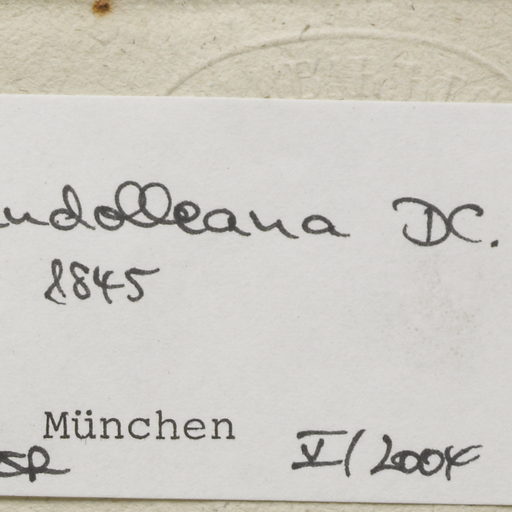 ndolleana DC.
1845
München
V/2004